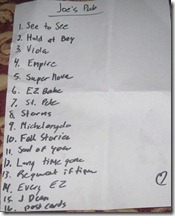 Joe's Pub
1. See to See
2. Hold at Bay
3. Viola
4. Empire
5. Super Nova
6. EZ Babe
7. St. Pete
8. Storms
9. Michelangelo
10. Fall Stories
11. Soul of your
12. Long time gone
13. Request if time
14. Every EZ
15. J Dean
16. post cards